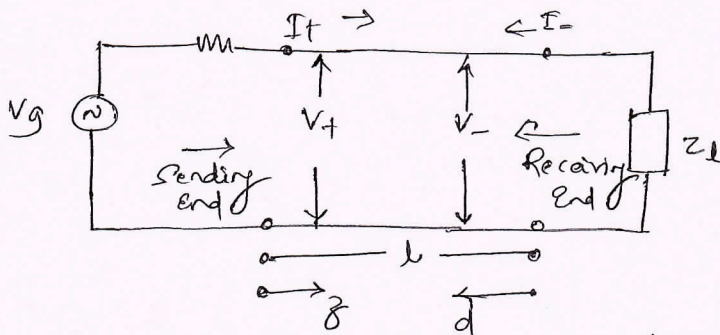 I+ → ← I-
Vg
V+ V-
Zl
→ ←
Sending End
Receiving End
l
z d